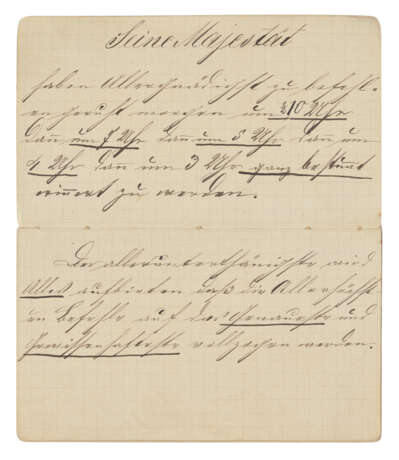 Seine Majestät
haben Allergnädigst zu befehl-
en geruht morgen um ½10 Uhr
dañ um 7 Uhr dañ um 5 Uhr dañ um
4 Uhr dañ um 3 Uhr ganz bestim̄t
erin̄ert zu werden.
Der allerunterthänigste wird
Alles aufbieten daß die Allerhöchst
en Befehle auf das Genaueste und
Gewissenhafteste vollzogen werden.